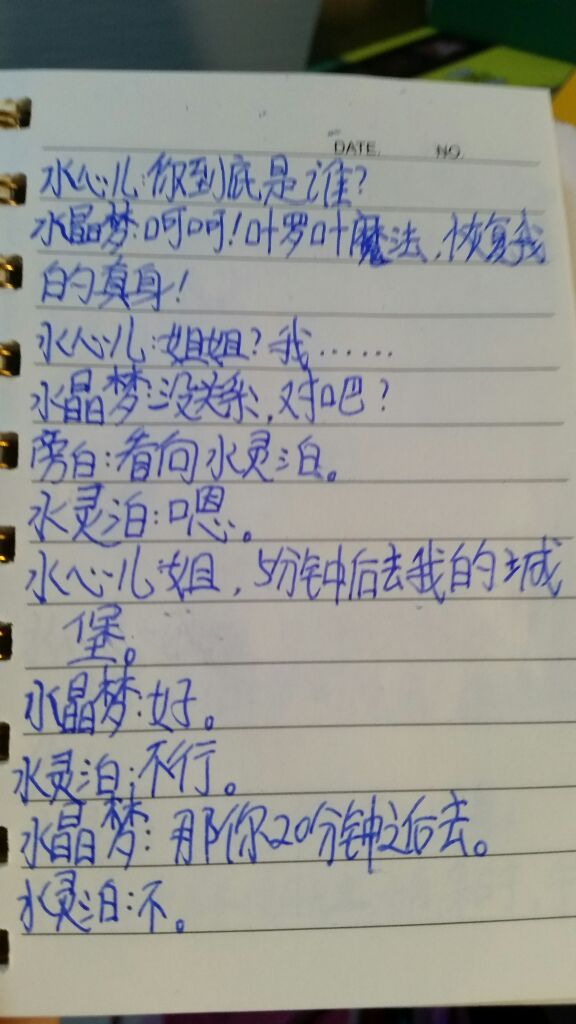 DATE. NO.
水心儿:你到底是谁?
水晶梦:呵呵!叶罗叶魔法,恢复我
的真身!
水心儿:姐姐?我……
水晶梦:没关系,对吧?
旁白:看向水灵泊。
水灵泊:嗯。
水心儿:姐,5分钟后去我的城
堡。
水晶梦:好。
水灵泊:不行。
水晶梦:那你20分钟之后去。
水灵泊:不。